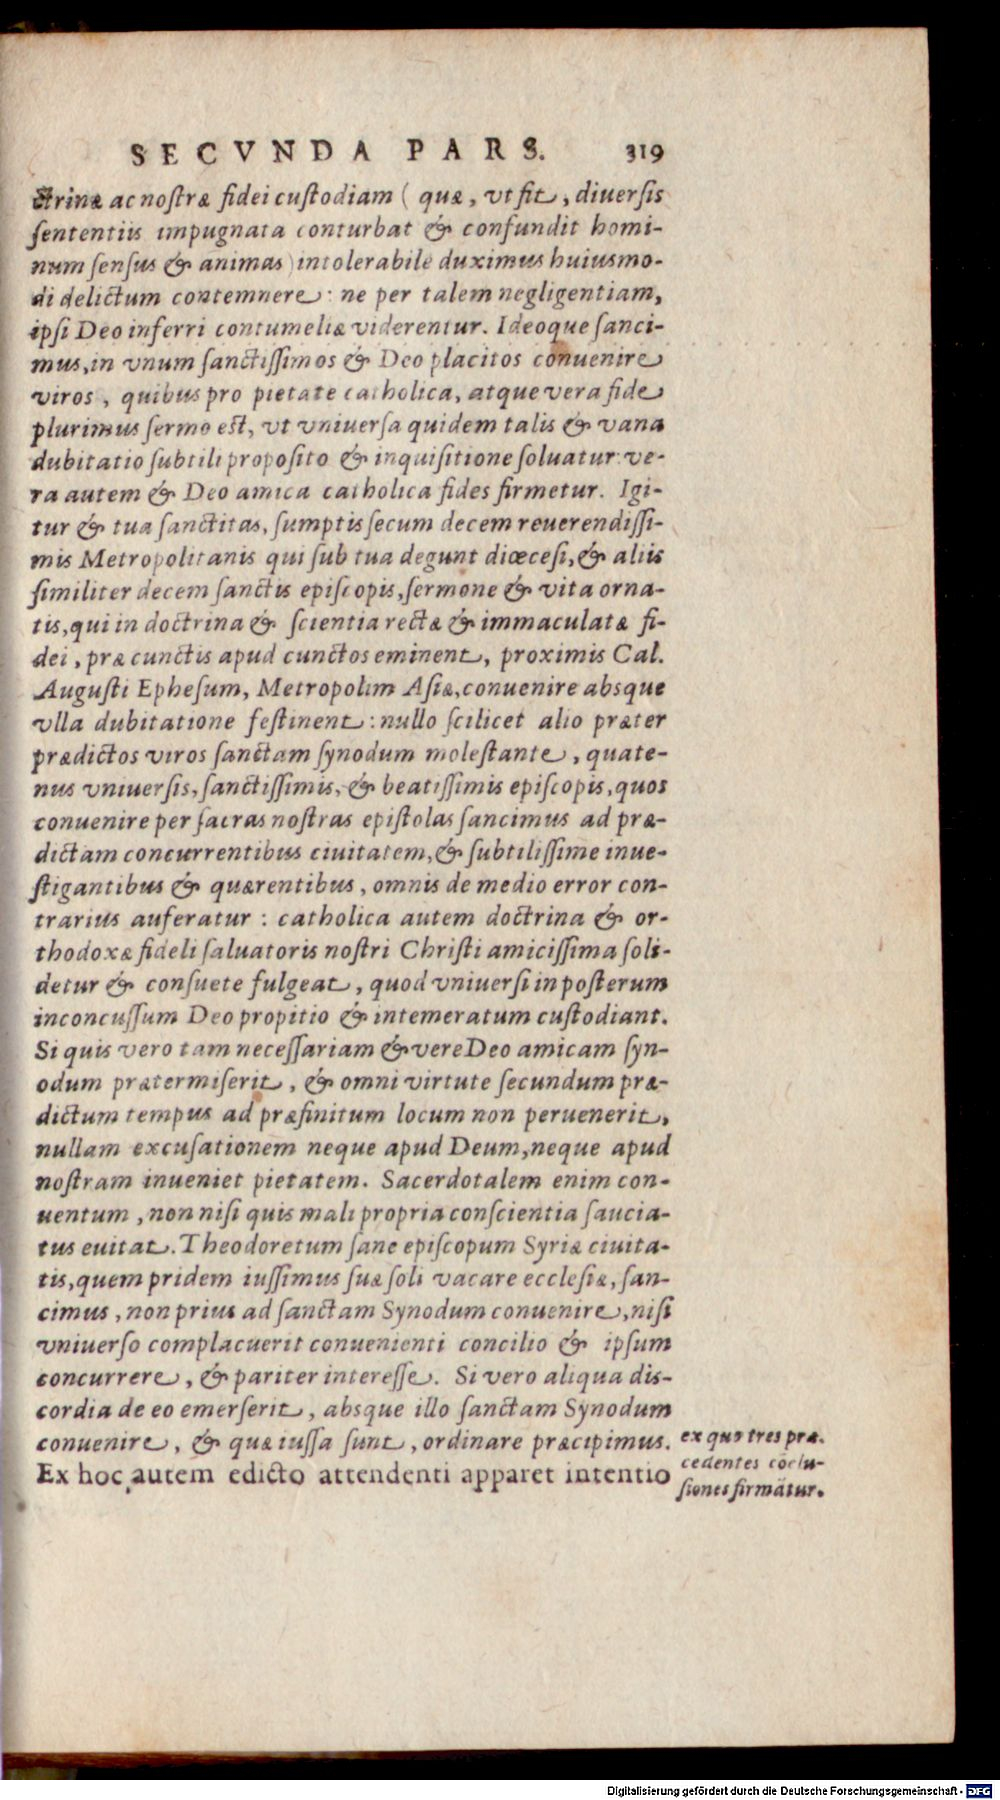 SECVNDA PARS. 319
ctrinæ ac nostræ fidei custodiam ( quæ, vt fit, diuersis
sententiis impugnata conturbat & confundit homi-
num sensus & animas) intolerabile duximus huiusmo-
di delictum contemnere: ne per talem negligentiam,
ipsi Deo inferri contumeliæ viderentur. Ideoque sanci-
mus, in vnum sanctissimos & Deo placitos conuenire
viros, quibus pro pietate catholica, atque vera fide
plurimus sermo est, vt vniuersa quidem talis & vana
dubitatio subtili proposito & inquisitione soluatur: ve-
ra autem & Deo amica catholica fides firmetur. Igi-
tur & tua sanctitas, sumptis secum decem reuerendissi-
mis Metropolitanis qui sub tua degunt diœcesi, & aliis
similiter decem sanctis episcopis, sermone & vita orna-
tis, qui in doctrina & scientia rectæ & immaculatæ fi-
dei, præ cunctis apud cunctos eminent, proximis Cal.
Augusti Ephesum, Metropolim Asiæ, conuenire absque
vlla dubitatione festinent: nullo scilicet alio præter
prædictos viros sanctam synodum molestante, quate-
nus vniuersis, sanctissimis, & beatissimis episcopis, quos
conuenire per sacras nostras epistolas sancimus ad præ-
dictam concurrentibus ciuitatem, & subtilissime inue-
stigantibus & quærentibus, omnis de medio error con-
trarius auferatur: catholica autem doctrina & or-
thodoxæ fideli saluatoris nostri Christi amicissima soli-
detur & consuete fulgeat, quod vniuersi in posterum
inconcussum Deo propitio & intemeratum custodiant.
Si quis vero tam necessariam & vere Deo amicam syn-
odum prætermiserit, & omni virtute secundum præ-
dictum tempus ad præfinitum locum non peruenerit,
nullam excusationem neque apud Deum, neque apud
nostram inueniet pietatem. Sacerdotalem enim con-
uentum, non nisi quis mali propria conscientia saucia-
tus euitat. Theodoretum sane episcopum Syriæ ciuita-
tis, quem pridem iussimus suæ soli vacare ecclesiæ, san-
cimus, non prius ad sanctam Synodum conuenire, nisi
vniuerso complacuerit conuenienti concilio & ipsum
concurrere, & pariter interesse. Si vero aliqua dis-
cordia de eo emerserit, absque illo sanctam Synodum
conuenire, & quæ iussa sunt, ordinare præcipimus.
Ex hoc autem edicto attendenti apparet intentio
ex quo tres præ-
cedentes cōclu-
siones firmātur.
Digitalisierung gefördert durch die Deutsche Forschungsgemeinschaft - DFG